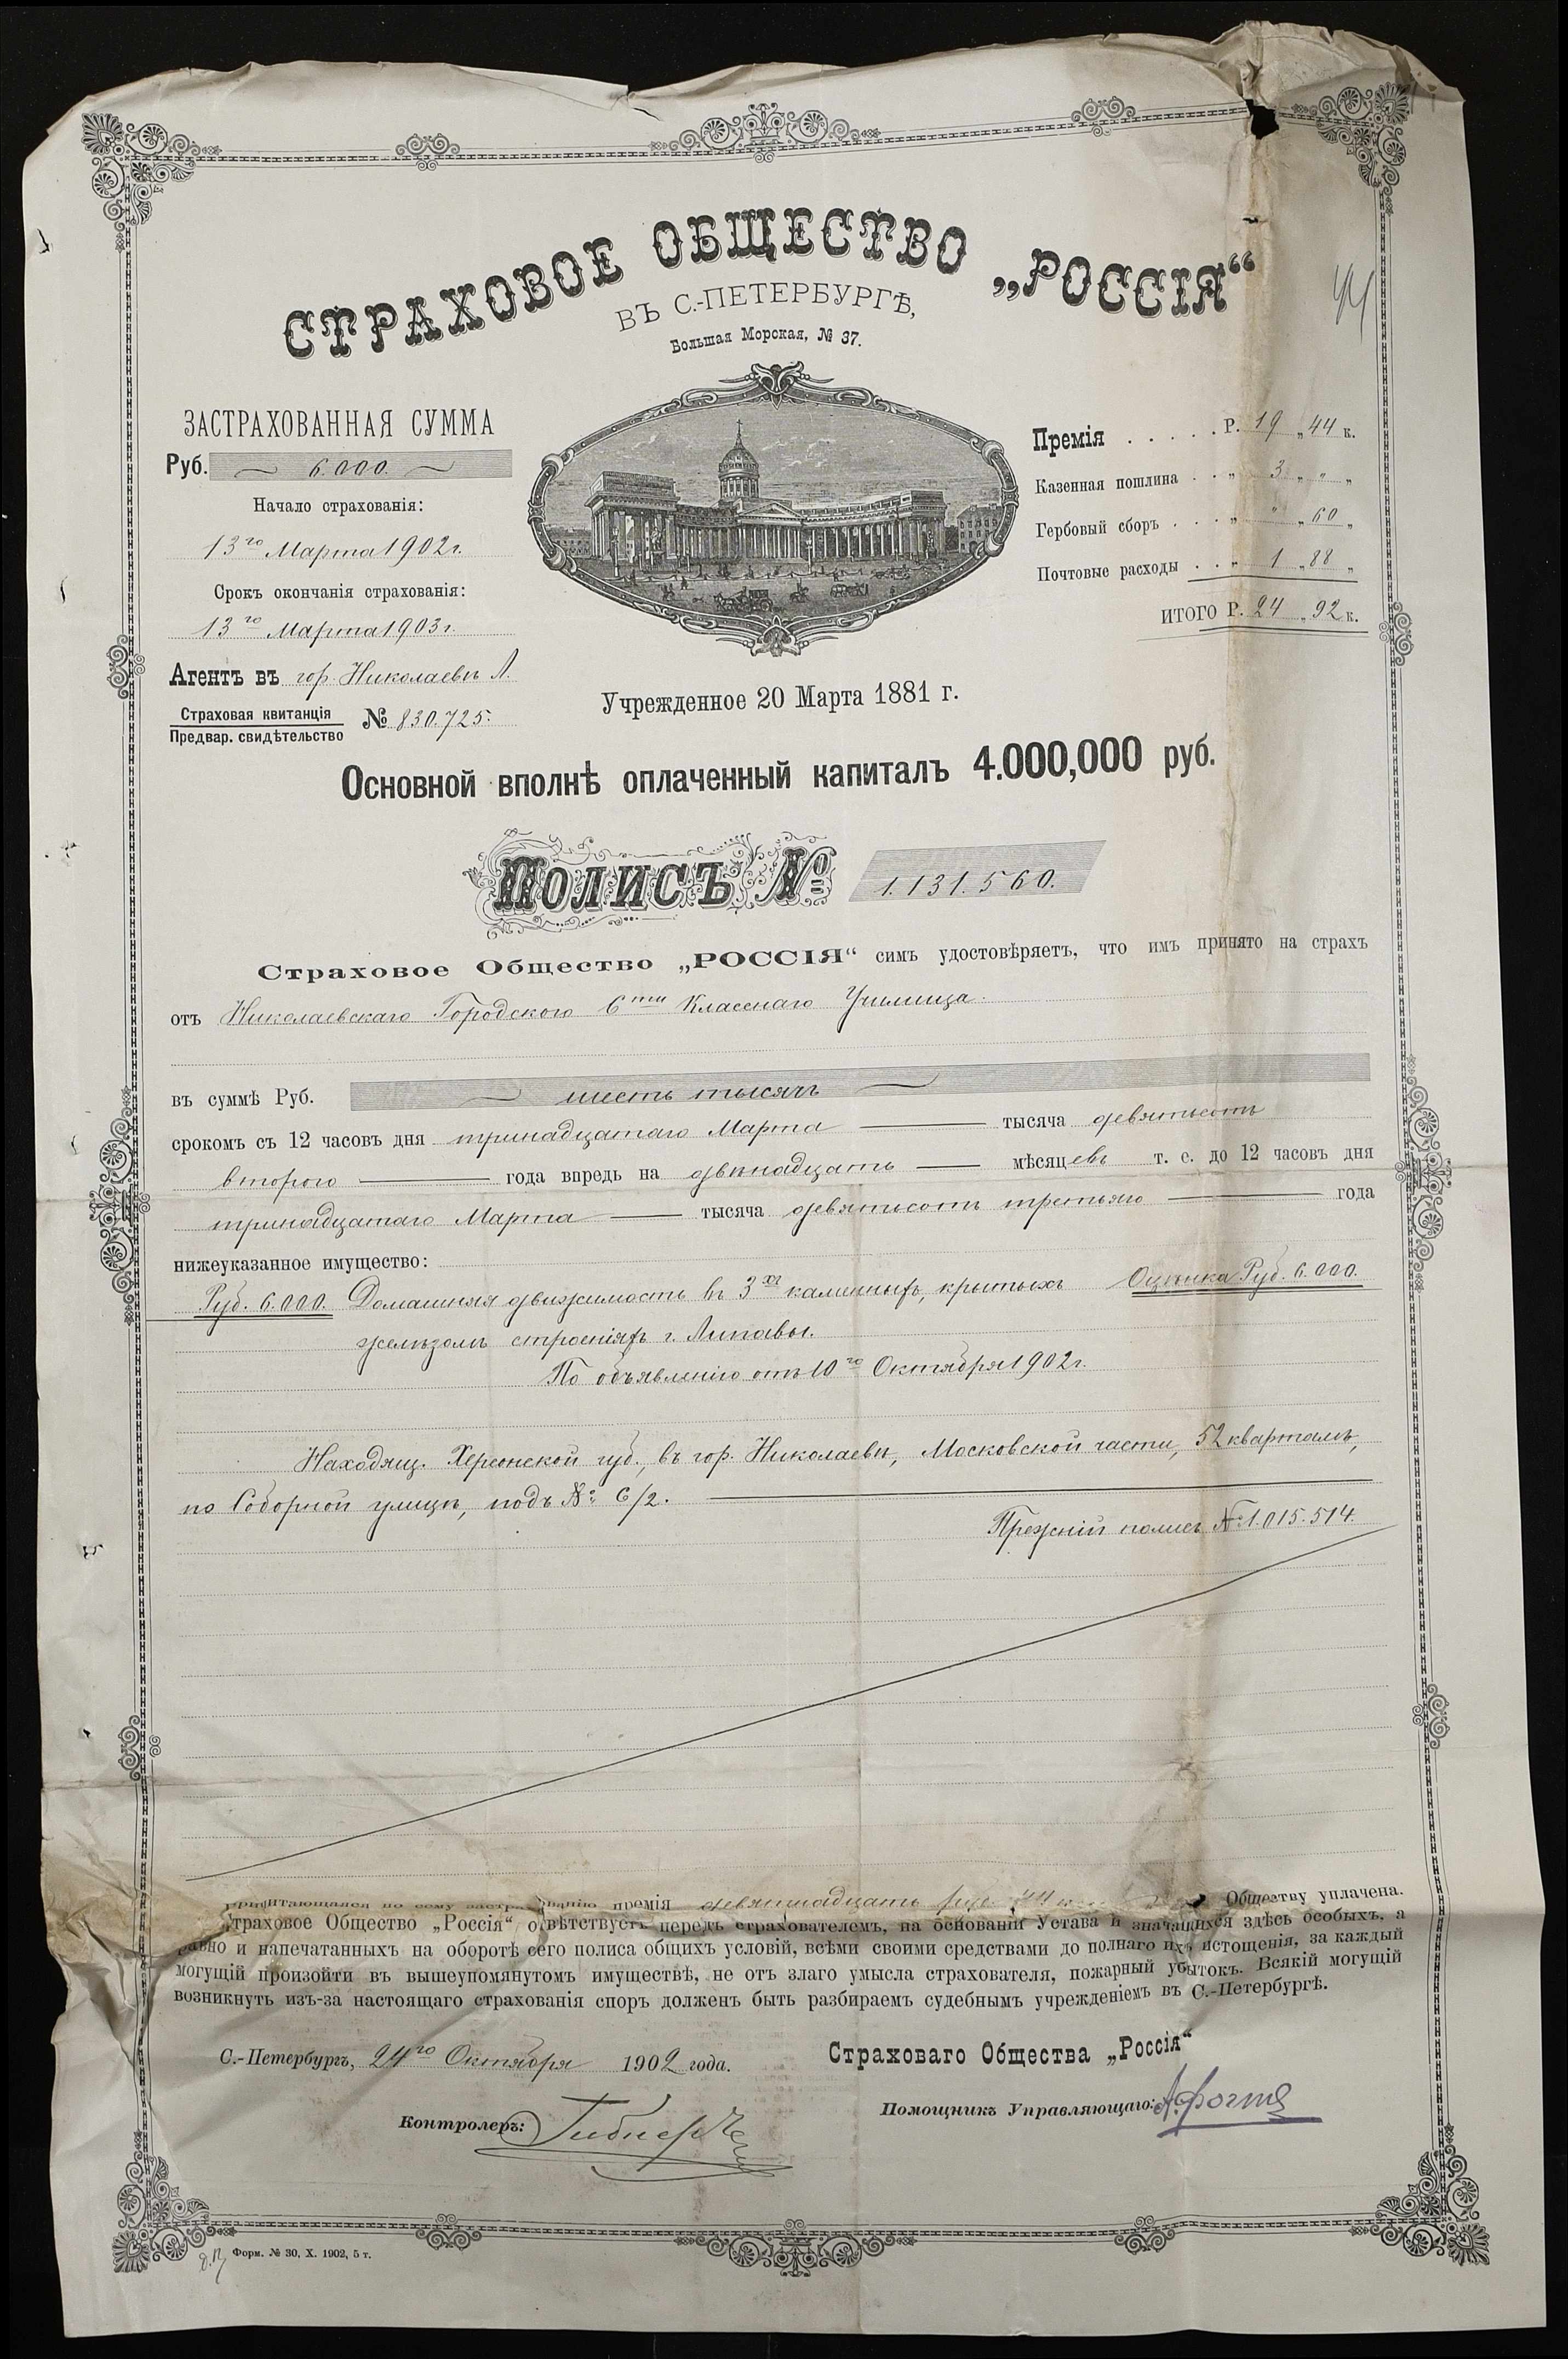 СТРАХОВОЕ ОБЩЕСТВО „РОССІЯ“
ВЪ С.-ПЕТЕРБУРГѢ,
Большая Морская, № 37.
ЗАСТРАХОВАННАЯ СУММА
Руб. 6.000.
Начало страхованія:
13го Марта 1902 г.
Срокъ окончанія страхованія:
13го Марта 1903 г.
Агентъ въ гор. Николаевѣ Л.
Страховая квитанція
Предвар. свидѣтельство
№ 830.725.
Премія . . . . . Р. 19 „ 44 к.
Казенная пошлина . . „ 3 „ „ „
Гербовый сборъ . . . „ „ „ 60 „
Почтовые расходы . . „ 1 „ 88 „
ИТОГО Р. 24 „ 92 к.
44
Учрежденное 20 Марта 1881 г.
Основной вполнѣ оплаченный капиталъ 4.000,000 руб.
Полисъ № 1.131.560.
Страховое Общество „РОССІЯ“ симъ удостовѣряетъ, что имъ принято на страхъ
отъ Николаевскаго Городского 6ти Класснаго Училища.
въ суммѣ Руб. шесть тысячъ
срокомъ съ 12 часовъ дня тринадцатаго Марта тысяча девятьсотъ
второго года впредь на двѣнадцать мѣсяцевъ т. е. до 12 часовъ дня
тринадцатаго Марта тысяча девятьсотъ третьяго года
нижеуказанное имущество:
Руб. 6.000. Домашняя движимость въ 3хъ каменныхъ, крытыхъ Оцѣнка Руб. 6.000.
желѣзомъ строеніяхъ г. Липавы.
По объявленію отъ 10го Октября 1902 г.
Находящ. Херсонской губ., въ гор. Николаевѣ, Московской части, 52 кварталѣ,
по Соборной улицѣ, подъ № 6/2.
Прежній полисъ № 1.015.514.
Причитающаяся по сему застрахованію премія девятнадцать руб. 44 Обществу уплачена.
Страховое Общество „Россія“ отвѣтствуетъ передъ страхователемъ, на основаніи Устава и значащихся здѣсь особыхъ, а
равно и напечатанныхъ на оборотѣ сего полиса общихъ условій, всѣми своими средствами до полнаго ихъ истощенія, за каждый
могущій произойти въ вышеупомянутомъ имуществѣ, не отъ злаго умысла страхователя, пожарный убытокъ. Всякій могущій
возникнуть изъ-за настоящаго страхованія споръ долженъ быть разбираемъ судебнымъ учрежденіемъ въ С.-Петербургѣ.
С.-Петербургъ, 24го Октября 1902 года.
Страховаго Общества „Россія“
Контролеръ:
Помощникъ Управляющаго:
Форм. № 30, X. 1902, 5 т.